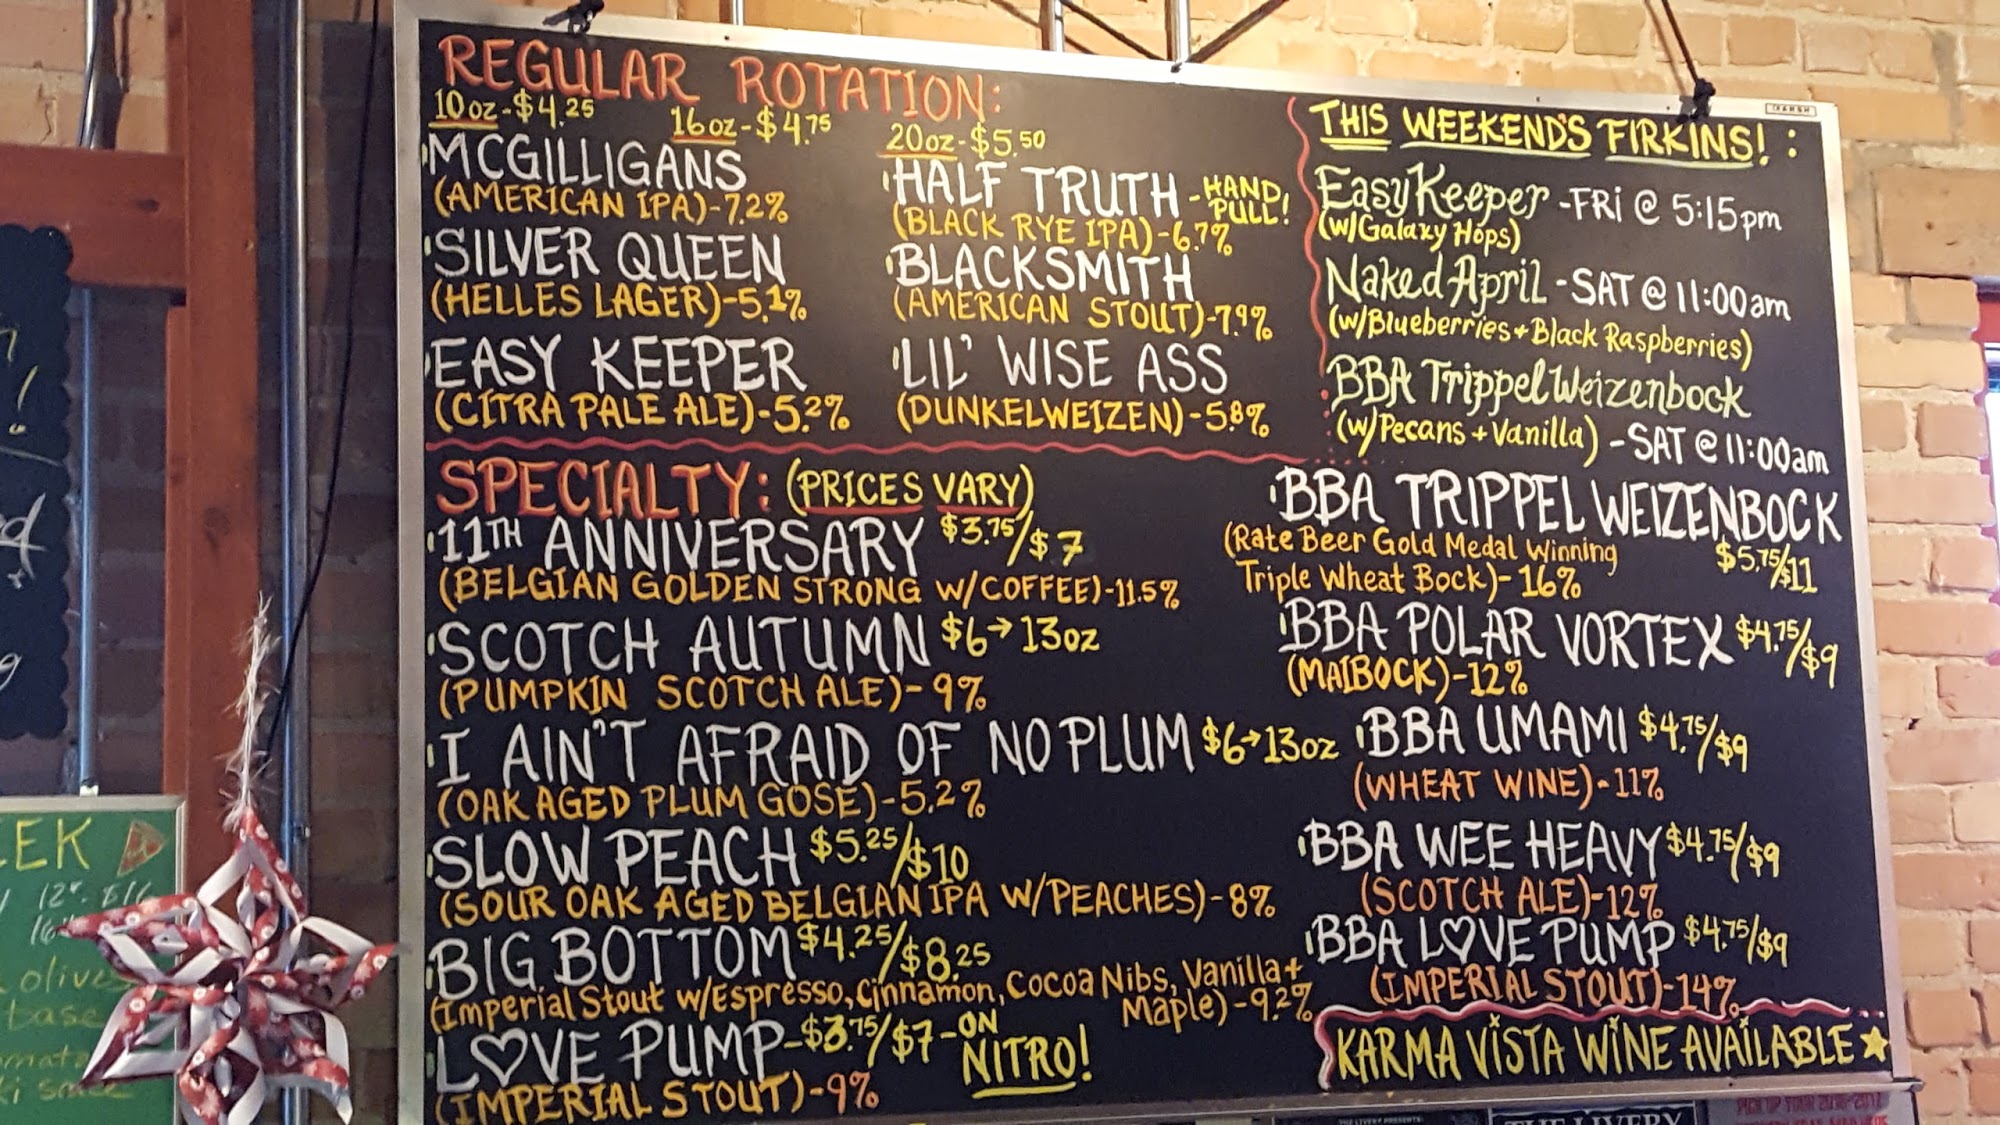 REGULAR ROTATION:
10oz-$4.25 16oz-$4.75 20oz-$5.50
MCGILLIGANS
(AMERICAN IPA)-7.2%
SILVER QUEEN
(HELLES LAGER)-5.1%
EASY KEEPER
(CITRA PALE ALE)-5.2%
HALF TRUTH - HAND PULL!
(BLACK RYE IPA)-6.7%
BLACKSMITH
(AMERICAN STOUT)-7.9%
LIL' WISE ASS
(DUNKELWEIZEN)-5.8%
THIS WEEKEND'S FIRKINS! :
Easy Keeper -FRi @ 5:15pm
(w/Galaxy Hops)
Naked April -SAT @ 11:00am
(w/Blueberries + Black Raspberries)
BBA Trippel Weizenbock
(w/Pecans + Vanilla) -SAT @ 11:00am
SPECIALTY: (PRICES VARY)
11TH ANNIVERSARY $3.75/$7
(BELGIAN GOLDEN STRONG w/COFFEE)-11.5%
SCOTCH AUTUMN $6→13oz
(PUMPKIN SCOTCH ALE)-9%
I AIN'T AFRAID OF NO PLUM $6→13oz
(OAK AGED PLUM GOSE)-5.2%
SLOW PEACH $5.25/$10
(SOUR OAK AGED BELGIAN IPA W/PEACHES)-8%
BIG BOTTOM $4.25/$8.25
(Imperial Stout w/Espresso, Cinnamon, Cocoa Nibs, Vanilla +
Maple)-9.2%
L♡VE PUMP-$3.75/$7-ON NITRO!
(IMPERIAL STOUT)-9%
BBA TRIPPEL WEIZENBOCK
(Rate Beer Gold Medal Winning $5.75/$11
Triple Wheat Bock)-16%
BBA POLAR VORTEX $4.75/$9
(MAIBOCK)-12%
BBA UMAMI $4.75/$9
(WHEAT WINE)-11%
BBA WEE HEAVY $4.75/$9
(SCOTCH ALE)-12%
BBA L♡VE PUMP $4.75/$9
(IMPERIAL STOUT)-14%
KARMA VISTA WINE AVAILABLE ★
EEK
olives
base
THE LIVERY